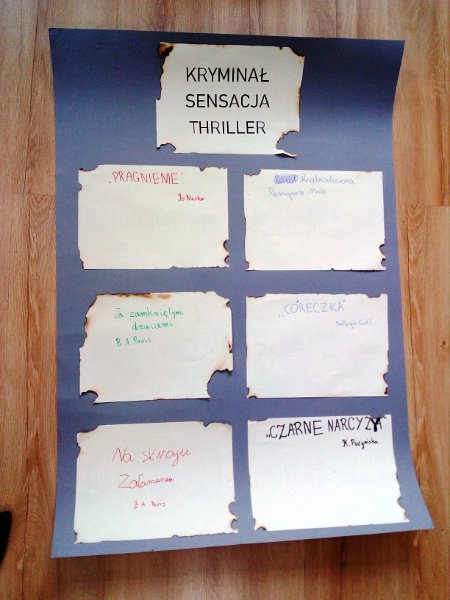 KRYMINAŁ
SENSACJA
THRILLER
„PRAGNIENIE"
Jo Nesbø
Nieodnaleziona
Remigiusz Mróz
Za zamkniętymi
drzwiami
B A Paris
„CÓRECZKA"
Na skraju
Załamania
B. A. Paris
„CZARNE NARCYZY"
K. Puzyńska